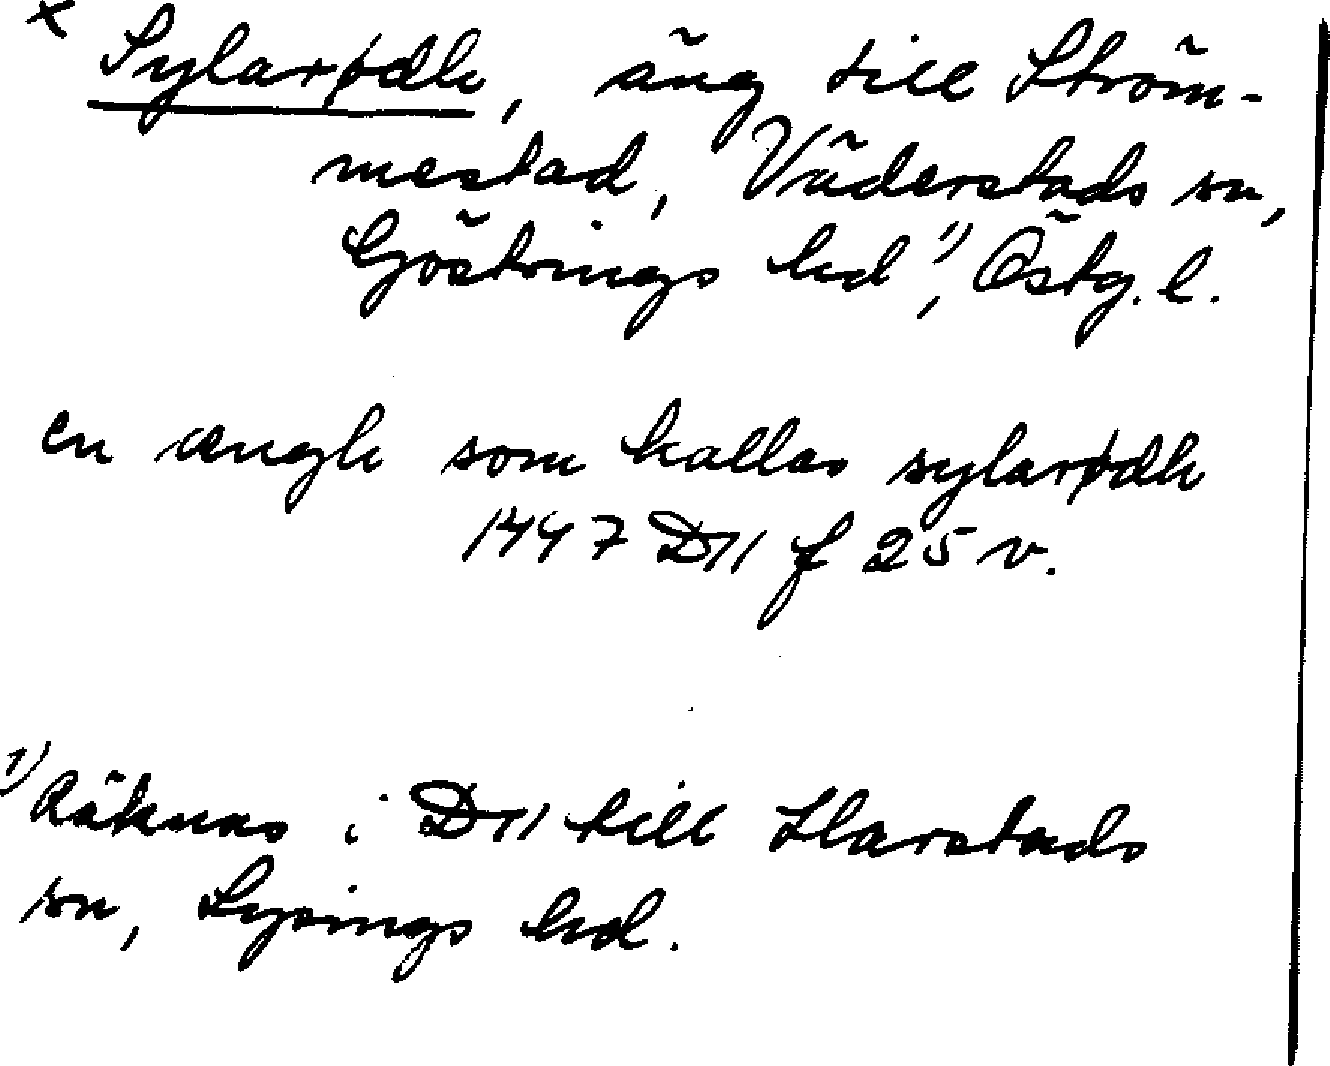 × Sylarødh, äng till Ström-
mestad, Väderstads sn,
Göstrings hd¹⁾, Östg. l.
en ængh som kallas sylarødh
1447 D11 f 25 v.
¹⁾ Räknas i D11 till Harstads
sn, Lysings hd.